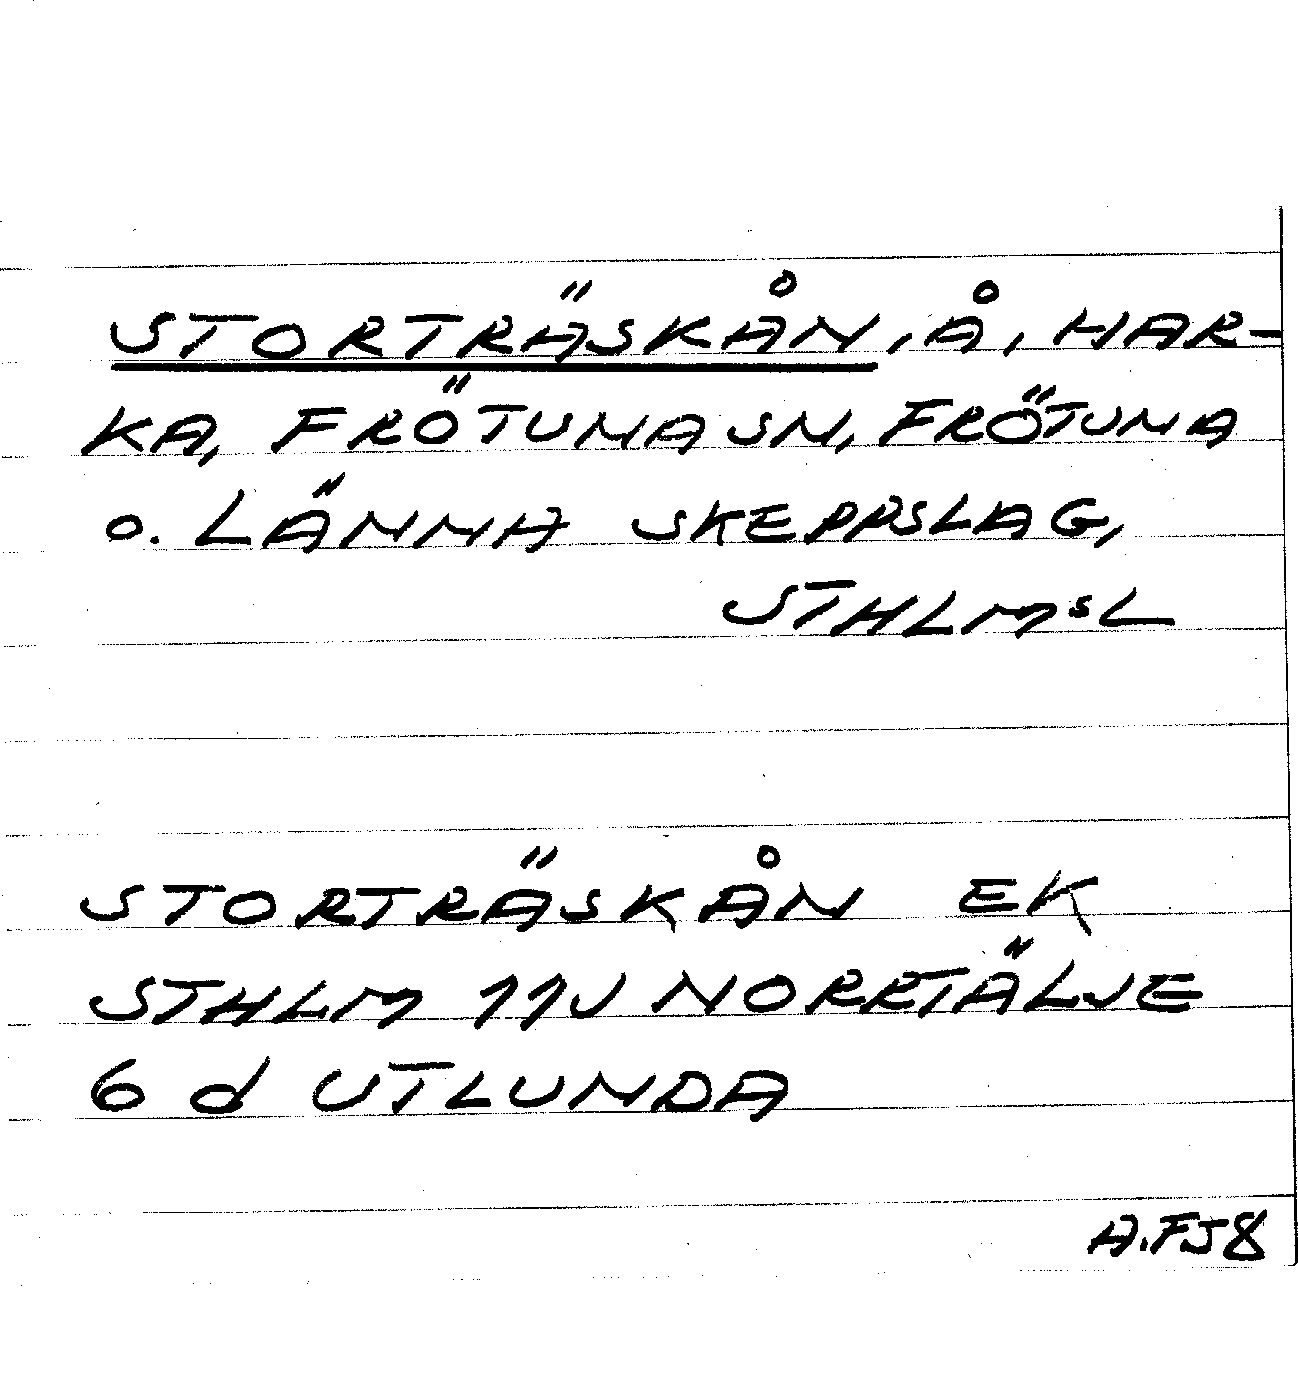 STORTRÄSKÅN, Å, HAR-
KA, FRÖTUNA SN, FRÖTUNA
o. LÄNNA SKEPPSLAG,
STHLMsL
STORTRÄSKÅN EK
STHLM 11J NORRTÄLJE
6 d UTLUNDA
A.FJ8